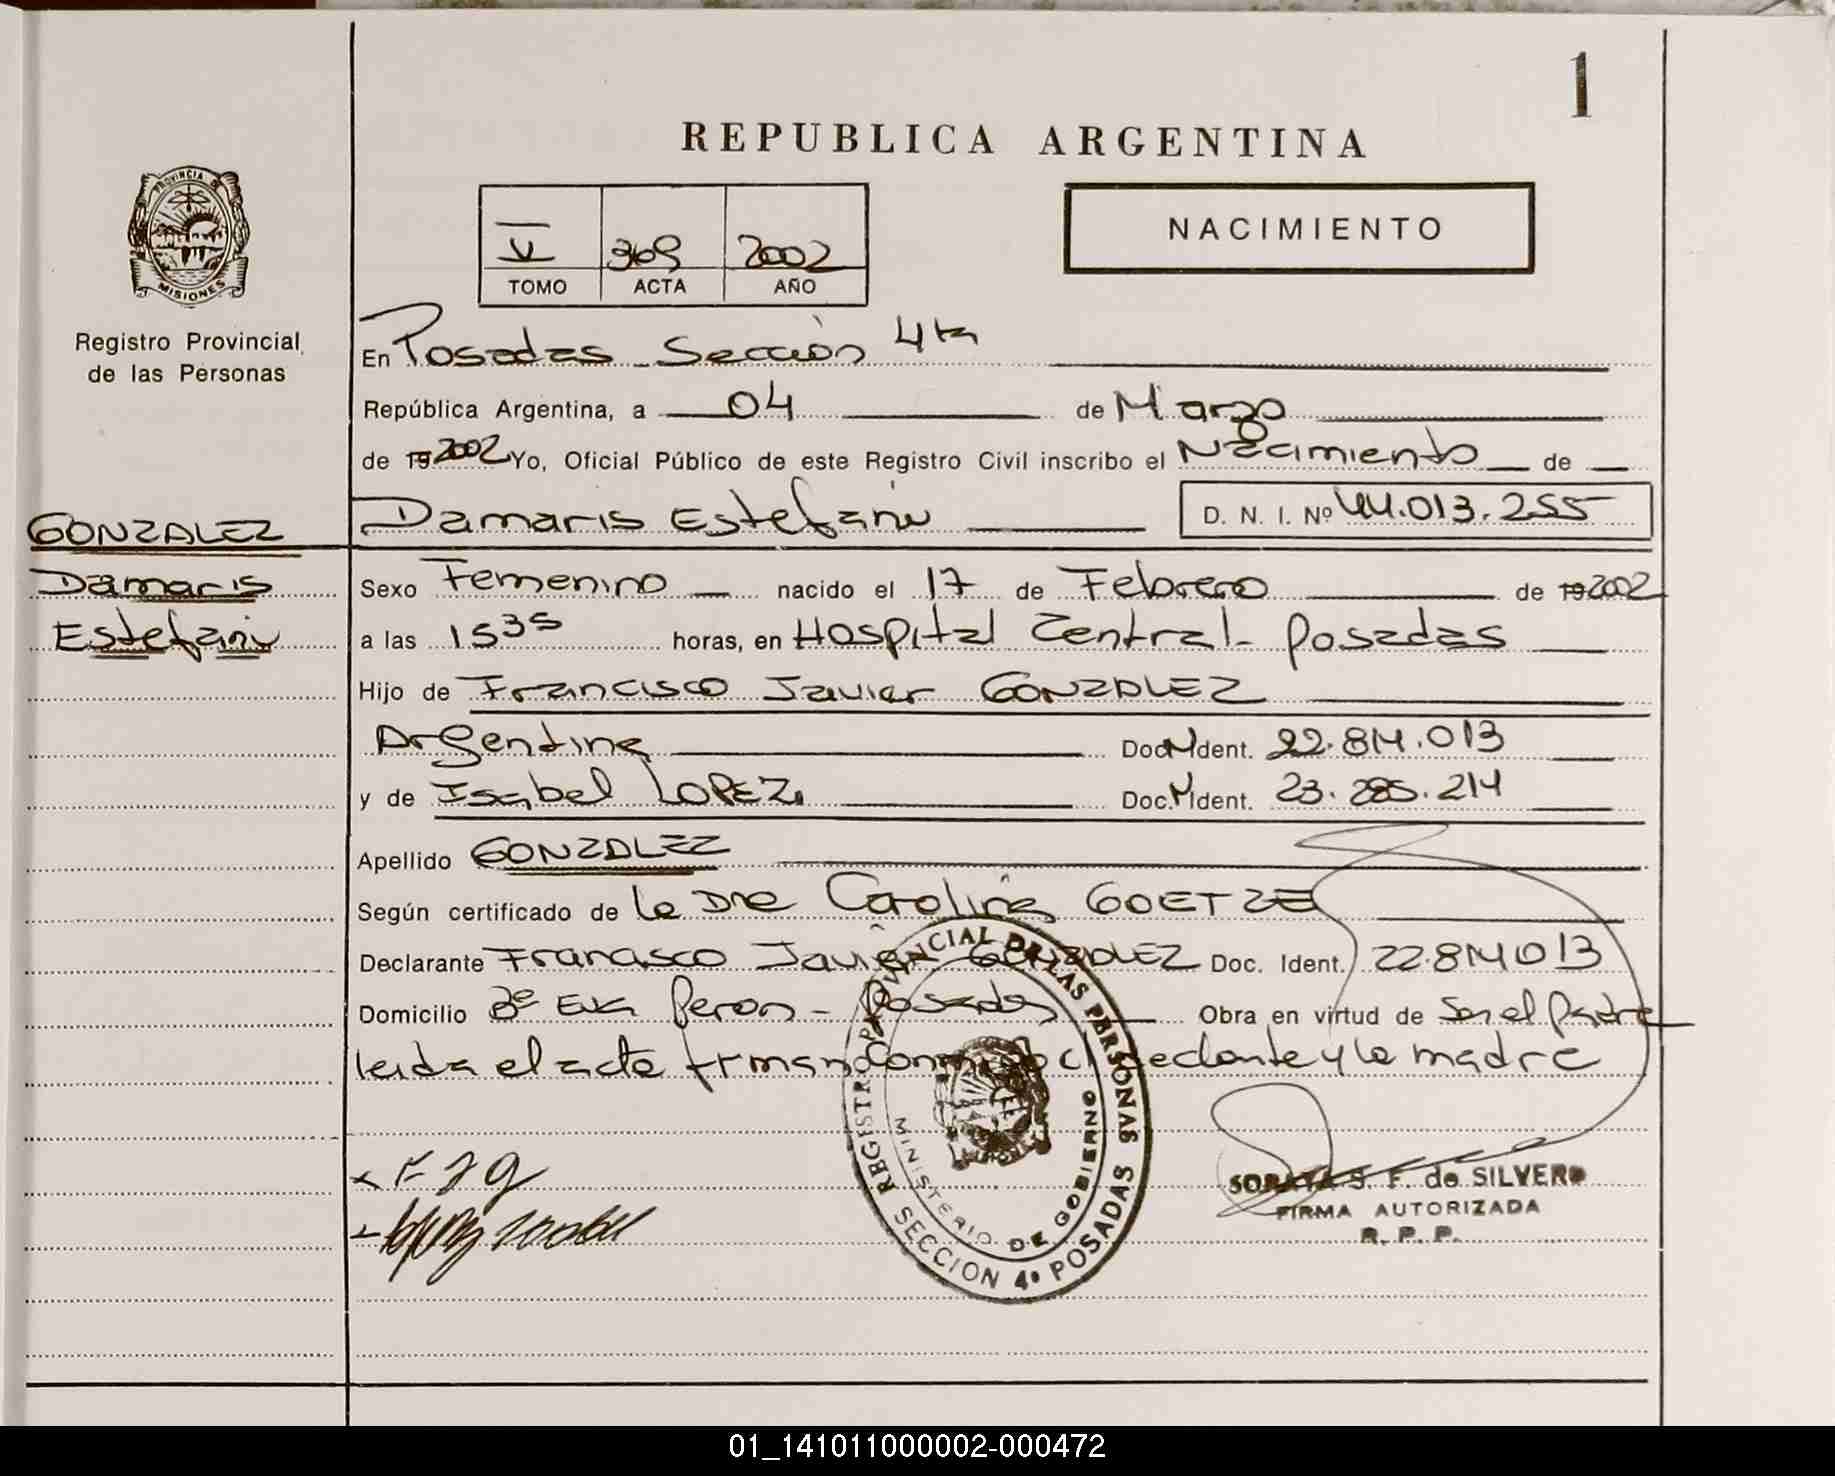 1
REPUBLICA ARGENTINA
PROVINCIA DE
MISIONES
V 369 2002
TOMO ACTA AÑO
NACIMIENTO
Registro Provincial
de las Personas
En Posadas Sección 4ta
República Argentina, a 04 de Marzo
de 19 2002 Yo, Oficial Público de este Registro Civil inscribo el Nacimiento de
GONZALEZ
Damaris Estefani D. N. I. Nº 44.013.255
Damaris
Sexo Femenino nacido el 17 de Febrero de 19 2002
Estefani
a las 15 35 horas, en Hospital Central - Posadas
Hijo de Francisco Javier GONZALEZ
Argentina Doc. Ident. 22.814.013
y de Isabel LOPEZ Doc. Ident. 23.285.214
Apellido GONZALEZ
Según certificado de la Dra Carolina GOETZE
Declarante Francisco Javier GONZALEZ Doc. Ident. 22.814013
Domicilio Bº Eva Peron - Posadas Obra en virtud de Ser el Padre
leida el acta firman conmigo el declarante y la madre
REGISTRO PROVINCIAL DE LAS PERSONAS
MINISTERIO DE GOBIERNO
SECCION 4ª POSADAS
SORAYA S. F. de SILVERO
FIRMA AUTORIZADA
R. P. P.
01_141011000002-000472